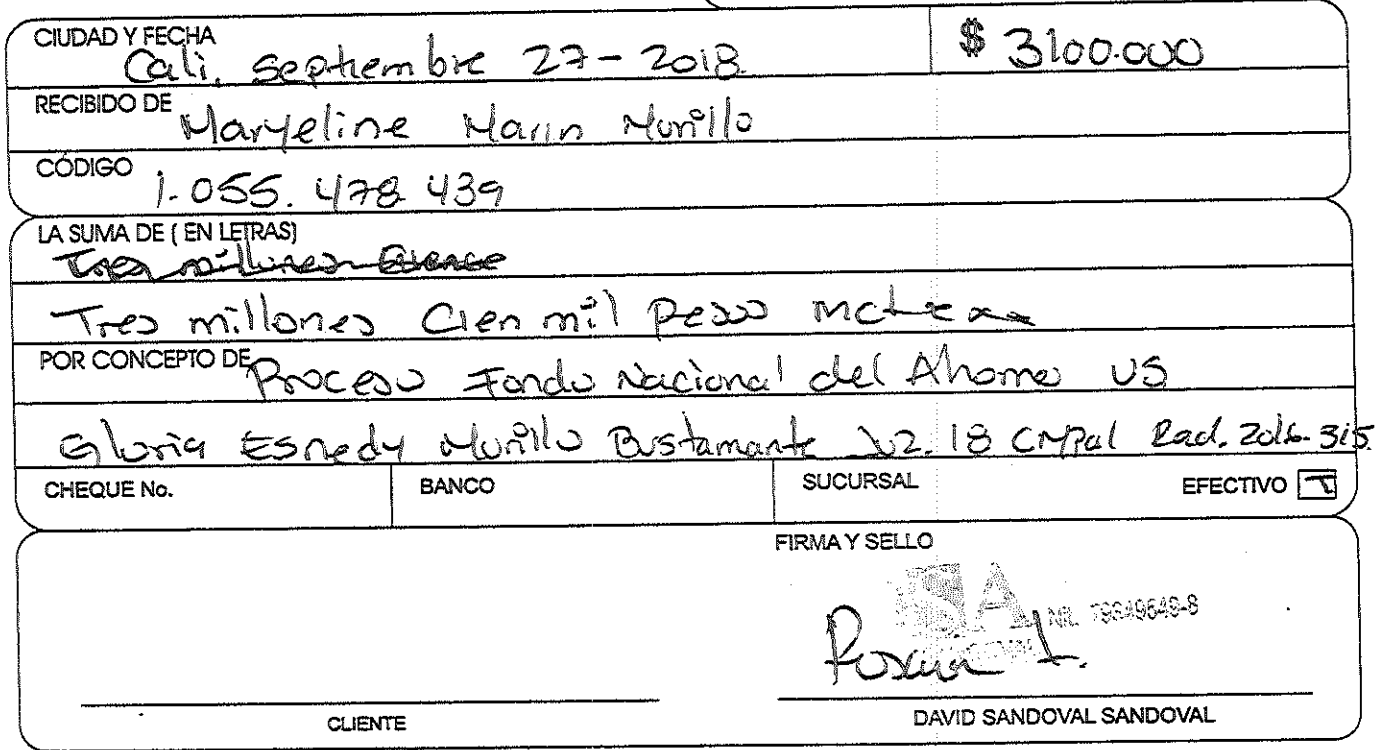 CIUDAD Y FECHA
Cali, septiembre 27-2018
$ 3100.000
RECIBIDO DE
Maryeline Marin Murillo
CÓDIGO
1.055.478 439
LA SUMA DE ( EN LETRAS)
Tres millones
Tres millones Cien mil pesos mcte
POR CONCEPTO DE
Proceso Fondo Nacional del Ahorro VS
Gloria Esnedy Murillo Bustamante Juz. 18 CMPal Rad. 2016-315.
CHEQUE No.
BANCO
SUCURSAL
EFECTIVO
FIRMA Y SELLO
SA
Nit. 79349549-8
CLIENTE
DAVID SANDOVAL SANDOVAL